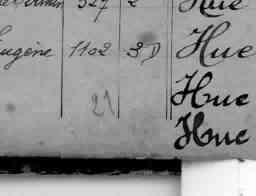 327 2 Hue
Eugène 1102 3 D Hue
21 Hue
Hue